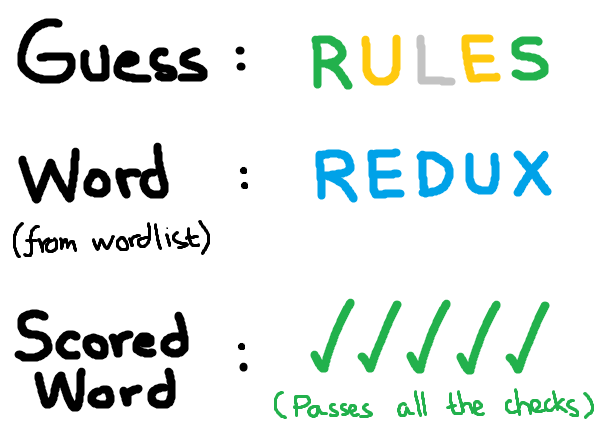 Guess : RULES
Word : REDUX
(from wordlist)
Scored Word : ✓✓✓✓✓
(Passes all the checks)